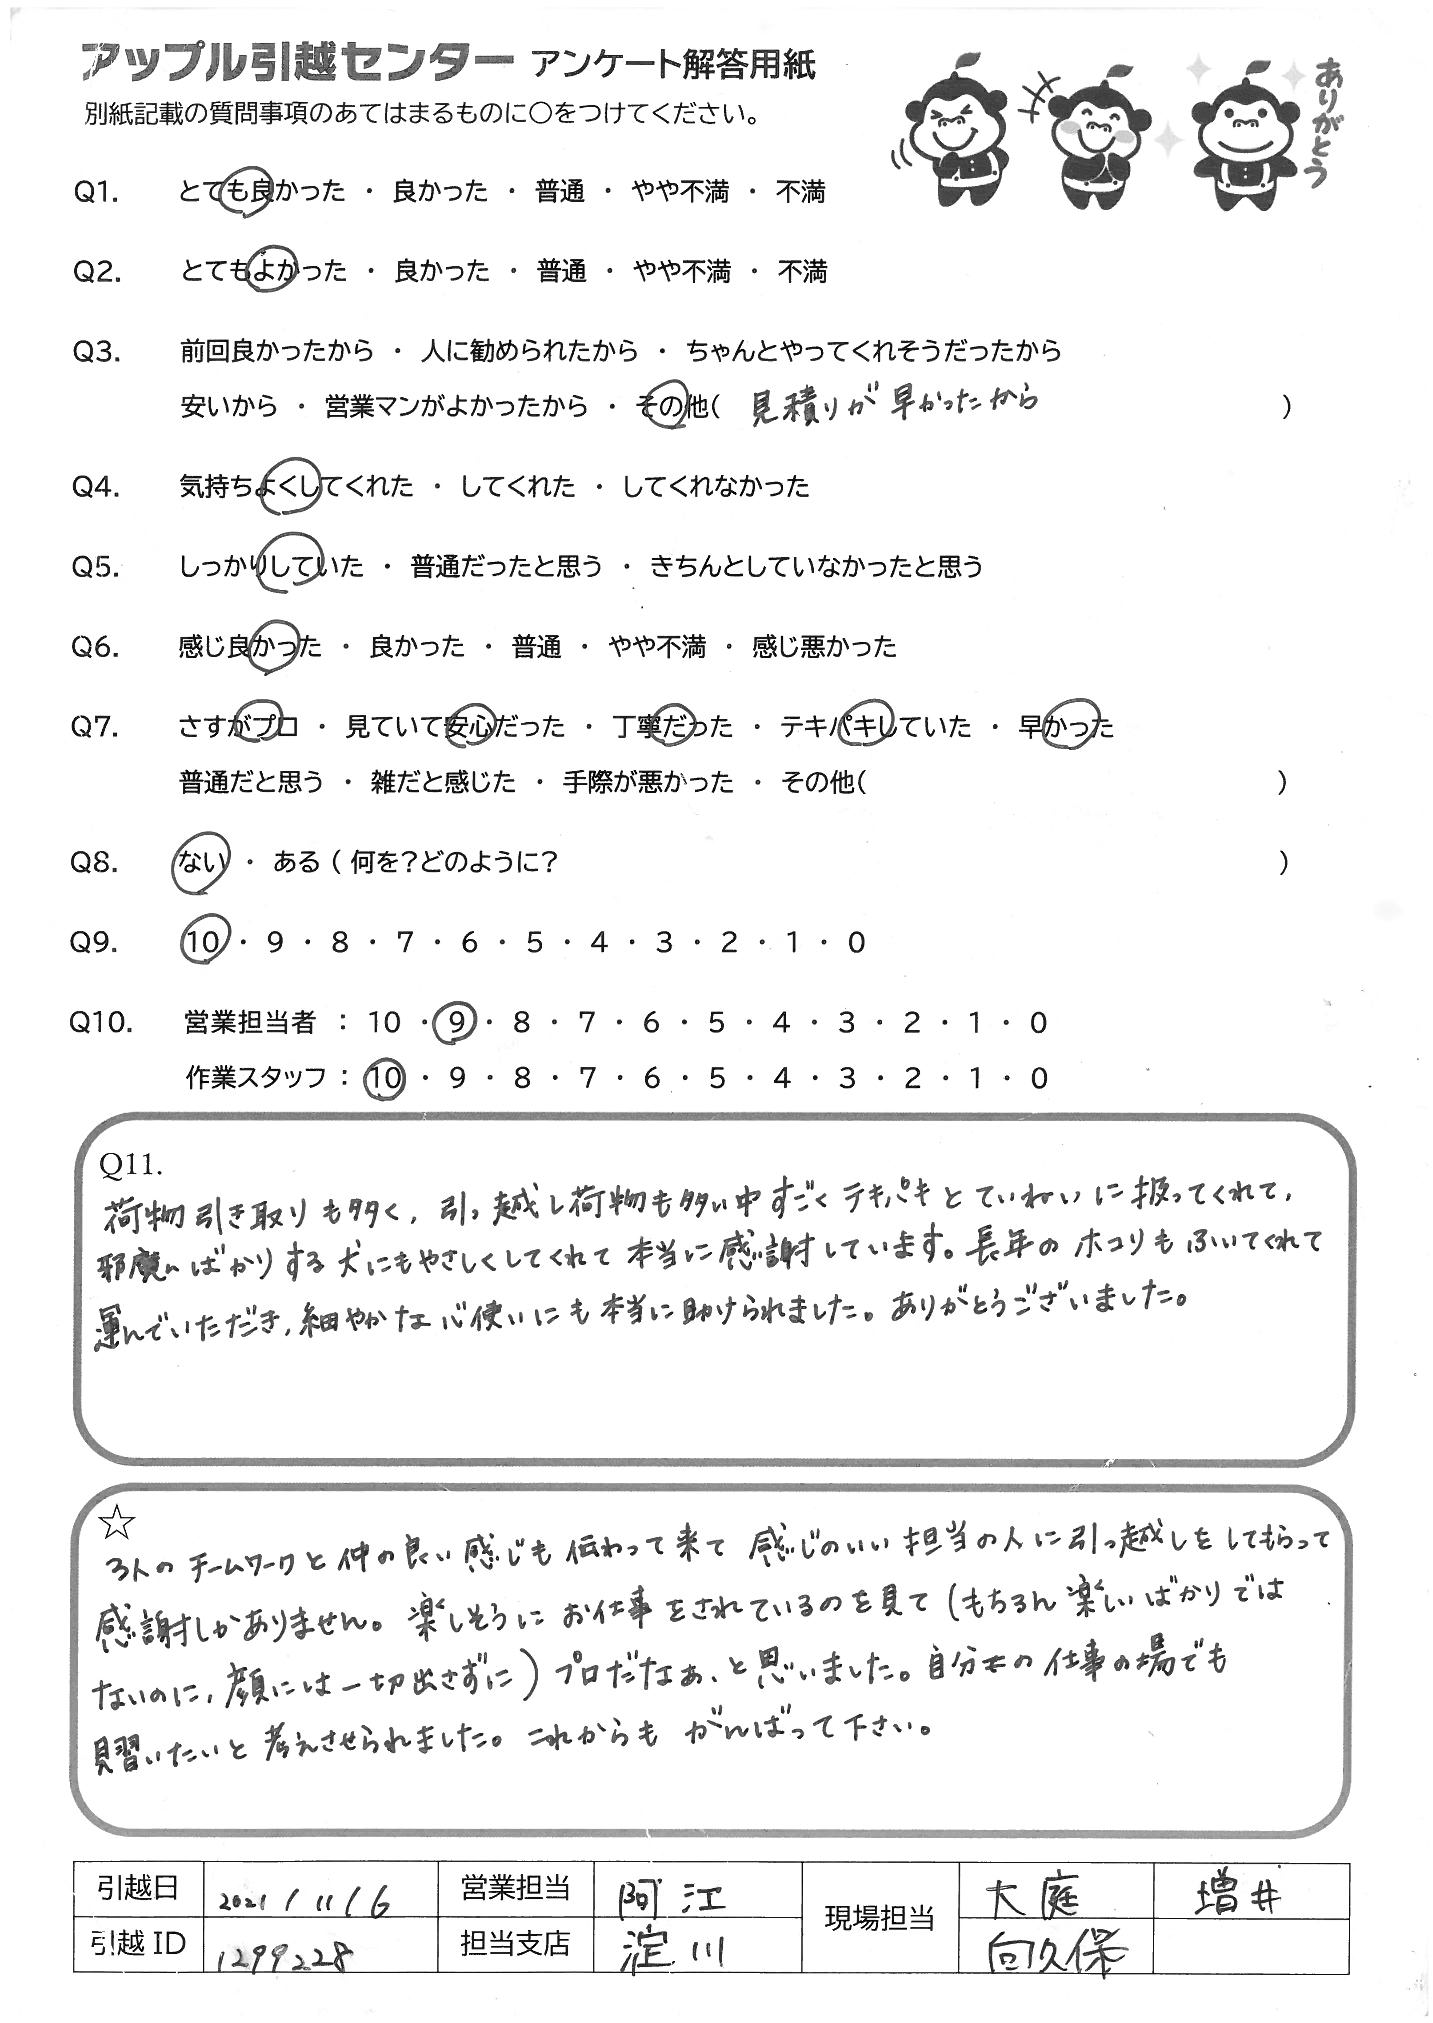 アップル引越センター アンケート解答用紙
別紙記載の質問事項のあてはまるものに〇をつけてください。
ありがとう
Q1. とても良かった ・ 良かった ・ 普通 ・ やや不満 ・ 不満
Q2. とてもよかった ・ 良かった ・ 普通 ・ やや不満 ・ 不満
Q3. 前回良かったから ・ 人に勧められたから ・ ちゃんとやってくれそうだったから
安いから ・ 営業マンがよかったから ・ その他( 見積りが早かったから )
Q4. 気持ちよくしてくれた ・ してくれた ・ してくれなかった
Q5. しっかりしていた ・ 普通だったと思う ・ きちんとしていなかったと思う
Q6. 感じ良かった ・ 良かった ・ 普通 ・ やや不満 ・ 感じ悪かった
Q7. さすがプロ ・ 見ていて安心だった ・ 丁寧だった ・ テキパキしていた ・ 早かった
普通だと思う ・ 雑だと感じた ・ 手際が悪かった ・ その他( )
Q8. ない ・ ある ( 何を?どのように? )
Q9. 10 ・ 9 ・ 8 ・ 7 ・ 6 ・ 5 ・ 4 ・ 3 ・ 2 ・ 1 ・ 0
Q10. 営業担当者 : 10 ・ 9 ・ 8 ・ 7 ・ 6 ・ 5 ・ 4 ・ 3 ・ 2 ・ 1 ・ 0
作業スタッフ : 10 ・ 9 ・ 8 ・ 7 ・ 6 ・ 5 ・ 4 ・ 3 ・ 2 ・ 1 ・ 0
Q11.
荷物引き取りも多く、引っ越し荷物も多い中すごくテキパキとていねいに扱ってくれて、
邪魔ばかりする犬にもやさしくしてくれて本当に感謝しています。長年のホコリもふいてくれて
運んでいただき、細やかな心使いにも本当に助けられました。ありがとうございました。
☆
3人のチームワークと仲の良い感じも伝わって来て感じのいい担当の人に引っ越しをしてもらって
感謝しかありません。楽しそうにお仕事をされているのを見て(もちろん楽しいばかりでは
ないのに、顔には一切出さずに)プロだなぁ、と思いました。自分の仕事の場でも
見習いたいと考えさせられました。これからもがんばって下さい。
引越日 2021/11/6 営業担当 阿江 現場担当 大庭 増井
引越ID 1299228 担当支店 淀川 向久保